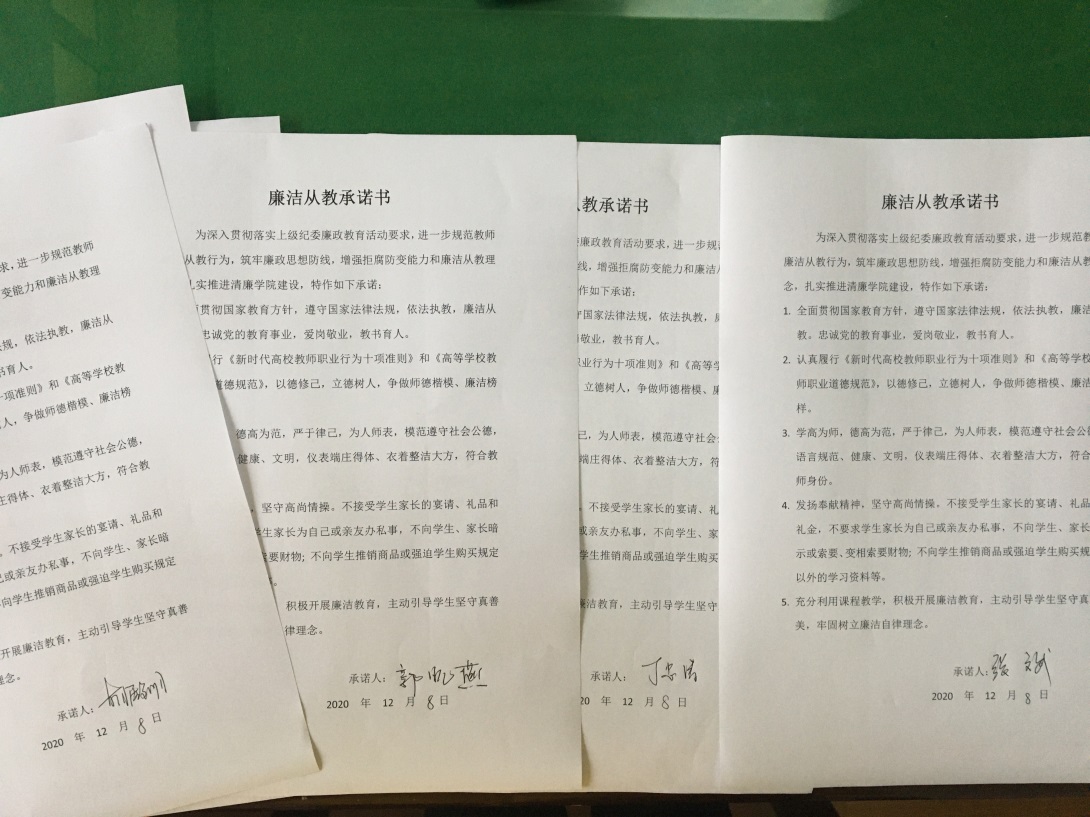 求，进一步规范教师
变能力和廉洁从教理
规，依法执教，廉洁从
书育人。
十项准则》和《高等学校教
人，争做师德楷模、廉洁榜
为人师表，模范遵守社会公德，
庄得体、衣着整洁大方，符合教
。不接受学生家长的宴请、礼品和
己或亲友办私事，不向学生、家长暗
向学生推销商品或强迫学生购买规定
开展廉洁教育，主动引导学生坚守真善
理念。
承诺人：
2020 年 12 月 8 日
廉洁从教承诺书
为深入贯彻落实上级纪委廉政教育活动要求，进一步规范教师
从教行为，筑牢廉政思想防线，增强拒腐防变能力和廉洁从教理
扎实推进清廉学院建设，特作如下承诺：
贯彻国家教育方针，遵守国家法律法规，依法执教，廉洁从
忠诚党的教育事业，爱岗敬业，教书育人。
履行《新时代高校教师职业行为十项准则》和《高等学校教
道德规范》，以德修己，立德树人，争做师德楷模、廉洁榜
德高为范，严于律己，为人师表，模范遵守社会公德，
、健康、文明，仪表端庄得体、衣着整洁大方，符合教
，坚守高尚情操。不接受学生家长的宴请、礼品和
学生家长为自己或亲友办私事，不向学生、家长暗
索要财物；不向学生推销商品或强迫学生购买规定
积极开展廉洁教育，主动引导学生坚守真善
律理念。
承诺人：郭
2020 年 12 月 8 日
教承诺书
廉政教育活动要求，进一步规
线，增强拒腐防变能力和廉洁
作如下承诺：
国家法律法规，依法执教，
爱岗敬业，教书育人。
业行为十项准则》和《高等学
修己，立德树人，争做师德楷模、
己，为人师表，模范遵守社会
端庄得体、衣着整洁大方，符
。不接受学生家长的宴请、礼
己或亲友办私事，不向学生、
向学生推销商品或强迫学生购买
廉洁教育，主动引导学生坚守
承诺人：丁
20 年 12 月 8 日
廉洁从教承诺书
为深入贯彻落实上级纪委廉政教育活动要求，进一步规范
廉洁从教行为，筑牢廉政思想防线，增强拒腐防变能力和廉洁从教
念，扎实推进清廉学院建设，特作如下承诺：
1. 全面贯彻国家教育方针，遵守国家法律法规，依法执教，廉洁
教。忠诚党的教育事业，爱岗敬业，教书育人。
2. 认真履行《新时代高校教师职业行为十项准则》和《高等学校
师职业道德规范》，以德修己，立德树人，争做师德楷模、廉洁
样。
3. 学高为师，德高为范，严于律己，为人师表，模范遵守社会公德
语言规范、健康、文明，仪表端庄得体、衣着整洁大方，符合
师身份。
4. 发扬奉献精神，坚守高尚情操。不接受学生家长的宴请、礼品
礼金，不要求学生家长为自己或亲友办私事，不向学生、家长
示或索要、变相索要财物；不向学生推销商品或强迫学生购买规
以外的学习资料等。
5. 充分利用课程教学，积极开展廉洁教育，主动引导学生坚守真
美，牢固树立廉洁自律理念。
承诺人：张
2020 年 12 月 8 日